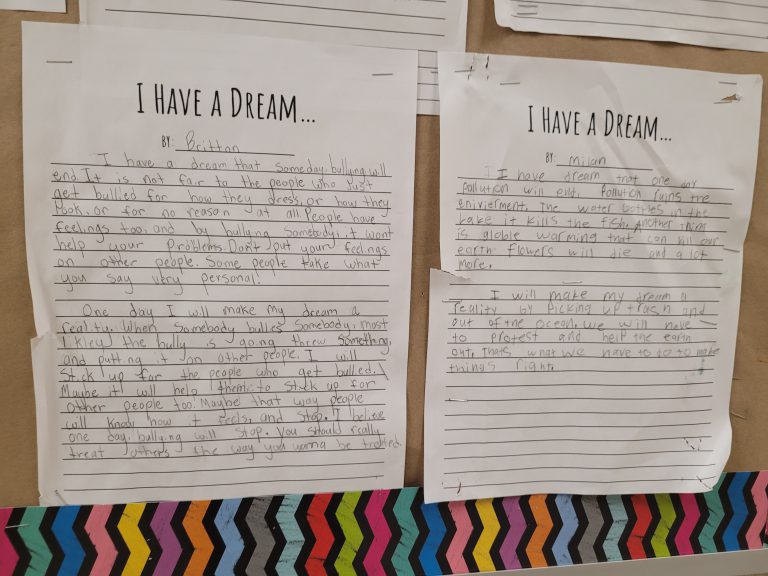 I HAVE A DREAM...
BY: Britton
I have a dream that someday bullying will
end. It is not fair to the people who just
get bullied for how they dress, or how they
look, or for no reason at all. People have
feelings too, and by bullying somebody, it wont
help your problems. Don't put your feelings
on other people. Some people take what
you say very personal!
One day I will make my dream a
reality. When somebody bullies somebody, most
likley the bully is going threw something,
and putting it on other people. I will
stick up for the people who get bullied.
Maybe it will help them to stick up for
other people too. Maybe that way people
will know how it feels, and stop. I believe
one day, bullying will stop. You should really
treat others the way you wanna be treated.
I HAVE A DREAM...
BY: Milan
I have dream that one day
pollution will end. Pollution ruins the
The water bottles in the
Lake it kills the fish. Another thing
is globle warming that can kill our
earth. flowers will die and a lot
more.
I will make my dream a
reality by picking up trash and
out of the ocean. We will have
to protest and help the earth
out. thats what we have to to to make
things right.